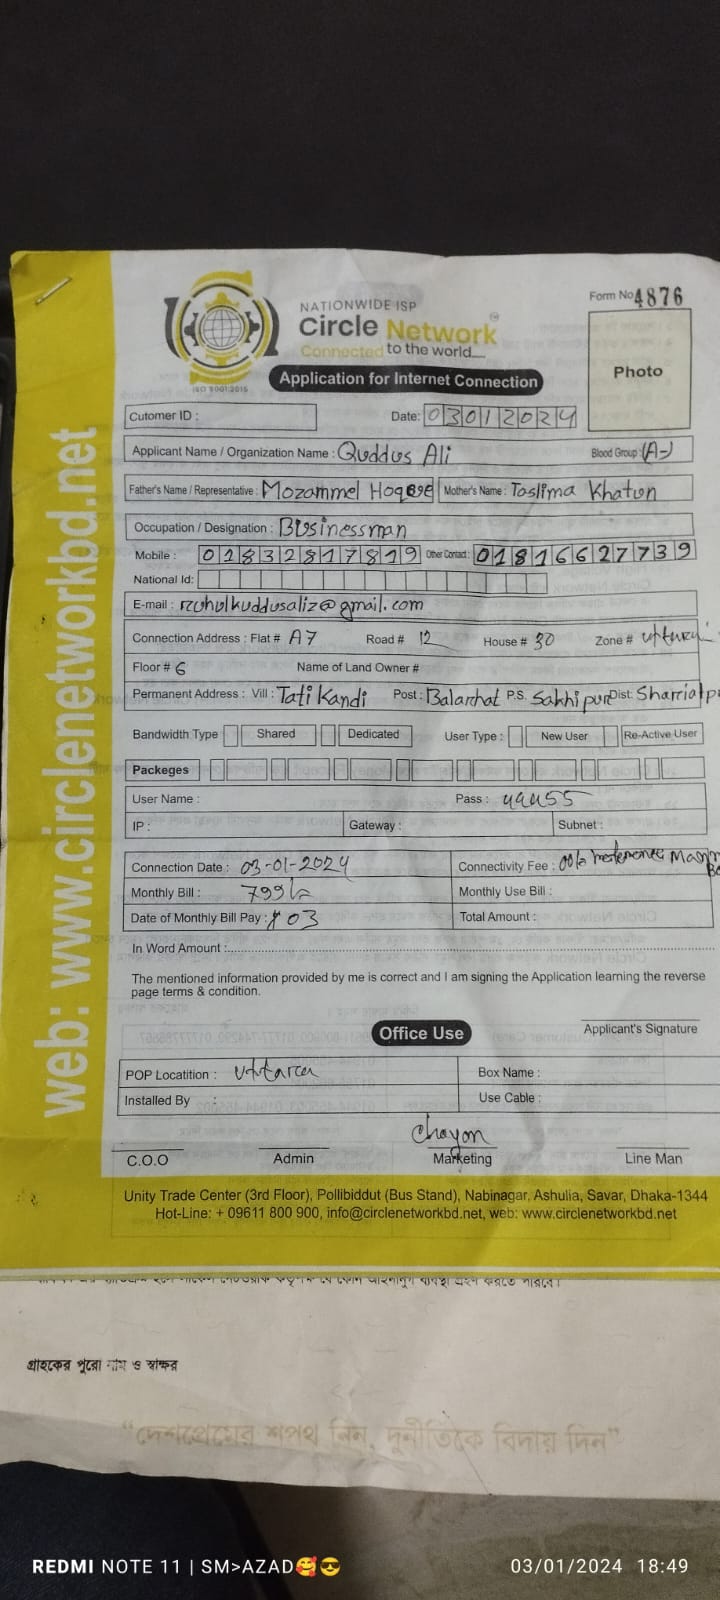 Form No 4876
NATIONWIDE ISP
Circle Network
Connected to the world....
ISO 9001:2015
Photo
Application for Internet Connection
Cutomer ID :
Date: 03012024
Applicant Name / Organization Name : Quddus Ali Blood Group : (A-)
Father's Name / Representative : Mozammel Hoque Mother's Name : Taslima Khatun
Occupation / Designation : Businessman
Mobile : 01832817819 Other Contact : 01816627739
National Id:
E-mail : ruhulkuddusaliz@gmail.com
Connection Address : Flat # A7 Road # 12 House # 30 Zone #
Floor # 6 Name of Land Owner #
Permanent Address : Vill : Tati Kandi Post : Balarhat P.S. Sakhipur Dist:
Bandwidth Type Shared Dedicated User Type : New User Re-Active User
Packeges
User Name : Pass :
IP : Gateway : Subnet :
Connection Date : 03-01-2024 Connectivity Fee :
Monthly Bill : 799/= Monthly Use Bill :
Date of Monthly Bill Pay : 03 Total Amount :
In Word Amount :
The mentioned information provided by me is correct and I am signing the Application learning the reverse
page terms & condition.
Applicant's Signature
Office Use
POP Locatition : Uttara Box Name :
Installed By : Use Cable :
Chayon
C.O.O Admin Marketing Line Man
Unity Trade Center (3rd Floor), Pollibiddut (Bus Stand), Nabinagar, Ashulia, Savar, Dhaka-1344
Hot-Line: + 09611 800 900, info@circlenetworkbd.net, web: www.circlenetworkbd.net
web: www.circlenetworkbd.net
গ্রাহকের পুরো নাম ও স্বাক্ষর
“দেশপ্রেমের শপথ নিন, দুর্নীতিকে বিদায় দিন”
REDMI NOTE 11 | SM>AZAD🥰😎
03/01/2024 18:49